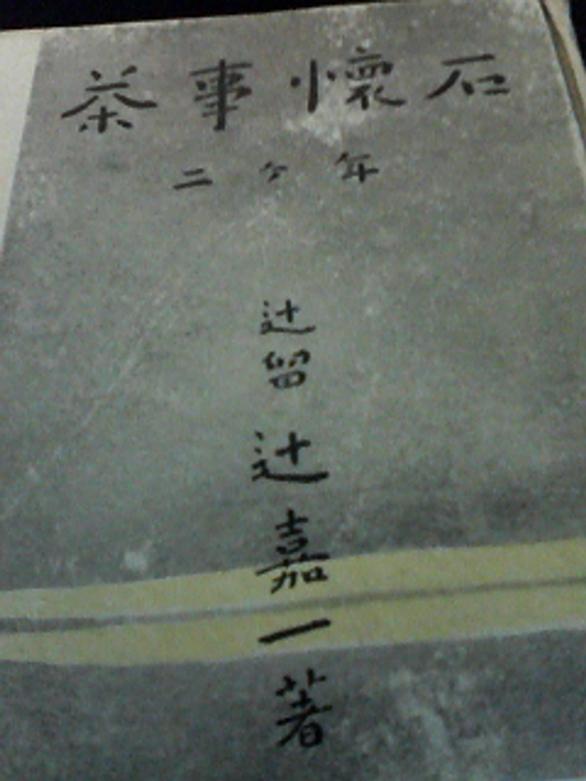 茶事懐石
二ケ年
辻留
辻嘉一著